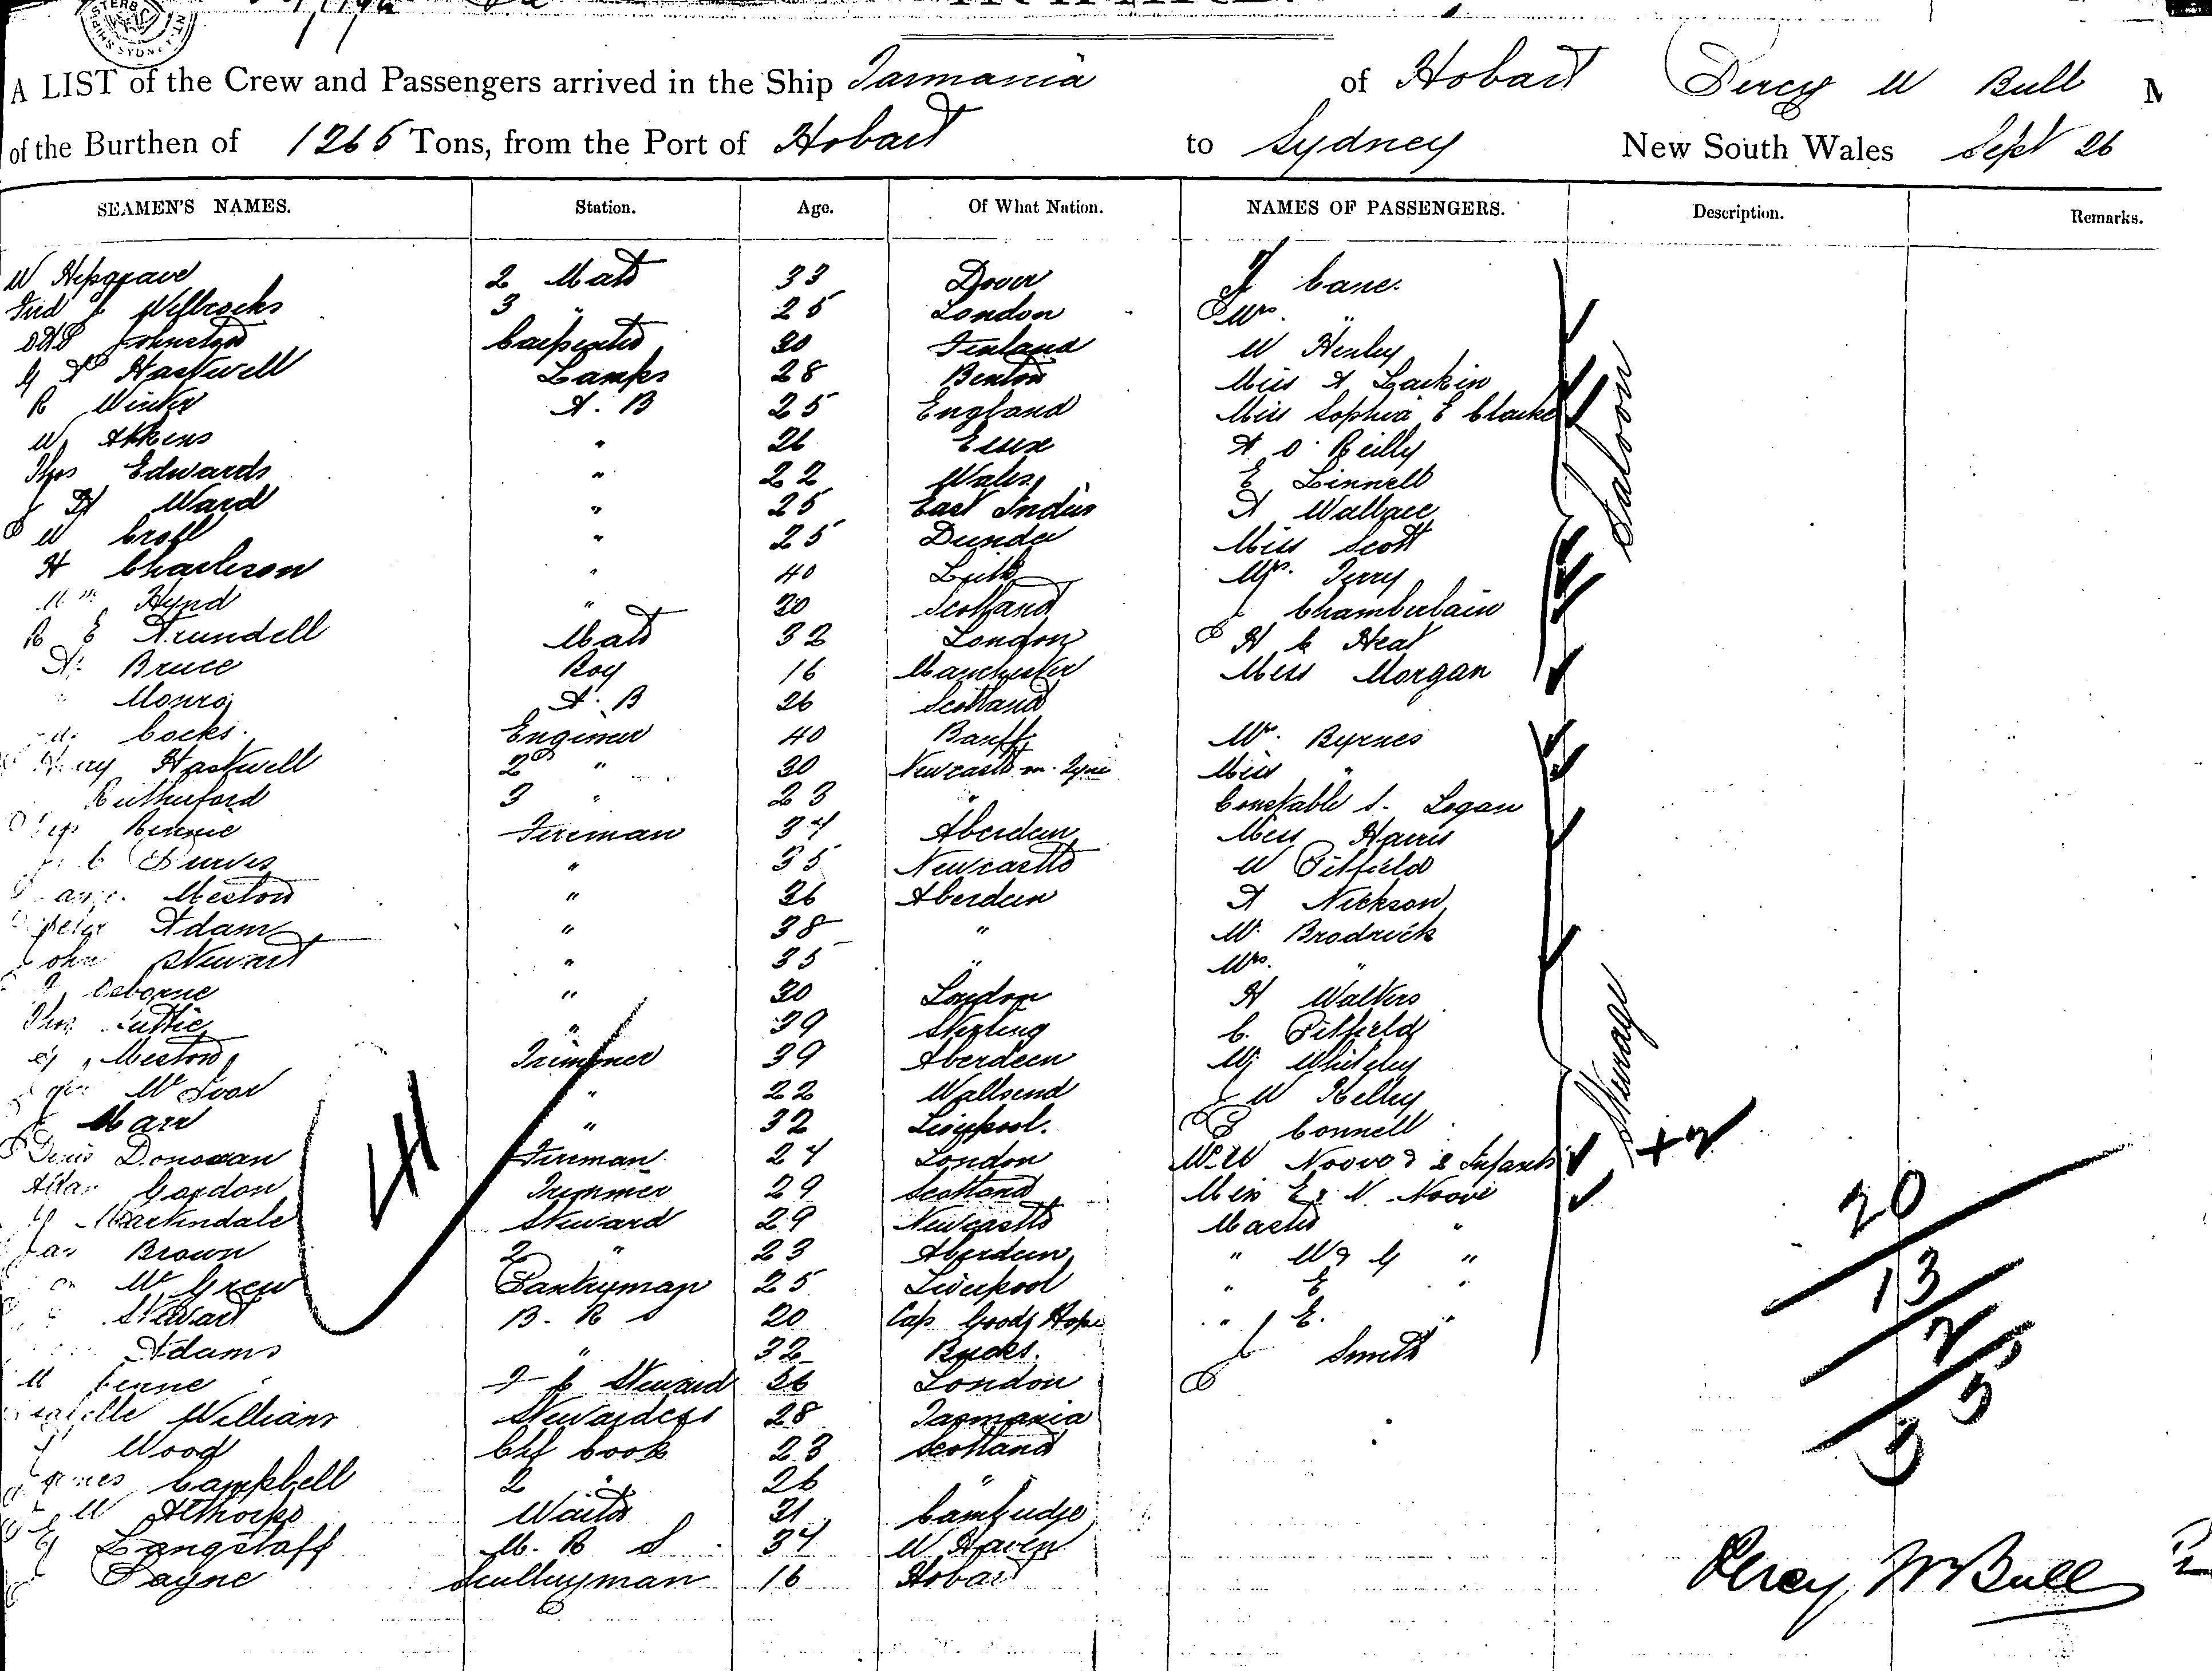 A LIST of the Crew and Passengers arrived in the Ship Tasmania of Hobart Percy W Bull M
of the Burthen of 1265 Tons, from the Port of Hobart to Sydney New South Wales Sept 26
SEAMEN'S NAMES. Station. Age. Of What Nation. NAMES OF PASSENGERS. Description. Remarks.
W Hipgrave 2 Mate 33 Dover J Cane.
Fred J Wilbrooks 3 " 25 London Mrs. "
Johnston Carpenter 30 Finland W Henley
G A Hastwell Lamps 28 Benton Miss A Larkin
R Winter A. B 25 England Miss Sophia E Clarke
W Atkins " 26 Essex A O'Reilly
Thos Edwards " 22 Wales E Linnell
J H Ward " 25 East Indies A Wallace
W Croft " 25 Dundee Miss Scott
H Charleson " 40 Leith Mr. Terry
Wm Hynd " 30 Scotland J Chamberlain
R E Arundell Mate 32 London H C Heat
A. Bruce Boy 16 Manchester Miss Morgan
Monro A. B 26 Scotland
Cocks. Engineer 40 Banff Mr. Byrnes
Hastwell 2nd " 30 Newcastle on Tyne Miss "
Rutherford 3 " 23 " Constable S. Logan
Rennie Fireman 34 Aberdeen Miss Harris
Purves " 35 Newcastle W Pitfield
Meston " 36 Aberdeen A Nickson
Peter Adam " 38 " W. Brodrick
John Stewart " 35 " Mrs. "
Osborne " 30 London H Walters
Thos Luttie " 39 Stirling C. Pitfield
Meston Trimmer 39 Aberdeen W Whiteley
McIvor " 22 Wallsend J W Kelley
Marr " 32 Liverpool. Connell
Denis Donovan Fireman 24 London Mr W Noove & 2 Infants
Allan Gordon Trimmer 29 Scotland Miss E & N Noove
Martindale Steward 29 Newcastle Master "
Jas Brown 2 " 23 Aberdeen " W & G "
McGrew Pantryman 25 Liverpool " E "
Stewart B. R S 20 Cap Good Hope " E. "
Adams " 32 Bucks. J Smith
F C Steward 26 London
Williams Stewardess 28 Tasmania
Wood Chf Cook 23 Scotland
James Campbell 2 " 26 "
W Althorpe Waiter 21 Cambridge
Langstaff M. R S 34 W Haven
Payne Sculleryman 16 Hobart
Saloon
Steerage
41
+2
20
13
2
35
Percy W Bull